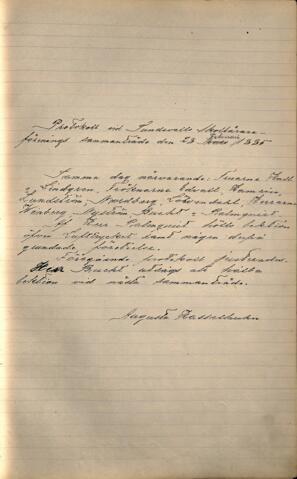 Protokoll vid Sundsvalls Skollärare-
förenings sammanträde den 28 Februari 1885
Samma dag närvarande: Fruarna Hall
& Lindgren, Fröknarna Edvall, Hamrin,
Lundström, Nordberg, Löfvendahl, Herrarne
Wenberg, Nyström, Bucht & Palmquist.
§1 Herr Palmquist höll lektion
öfver Lufttrycket samt någon derpå
grundade företeelse.
Föregående protokoll justerades.
Herr Bucht utsågs att hålla
lektion vid nästa sammanträde.
Augusta Hasselhuhn